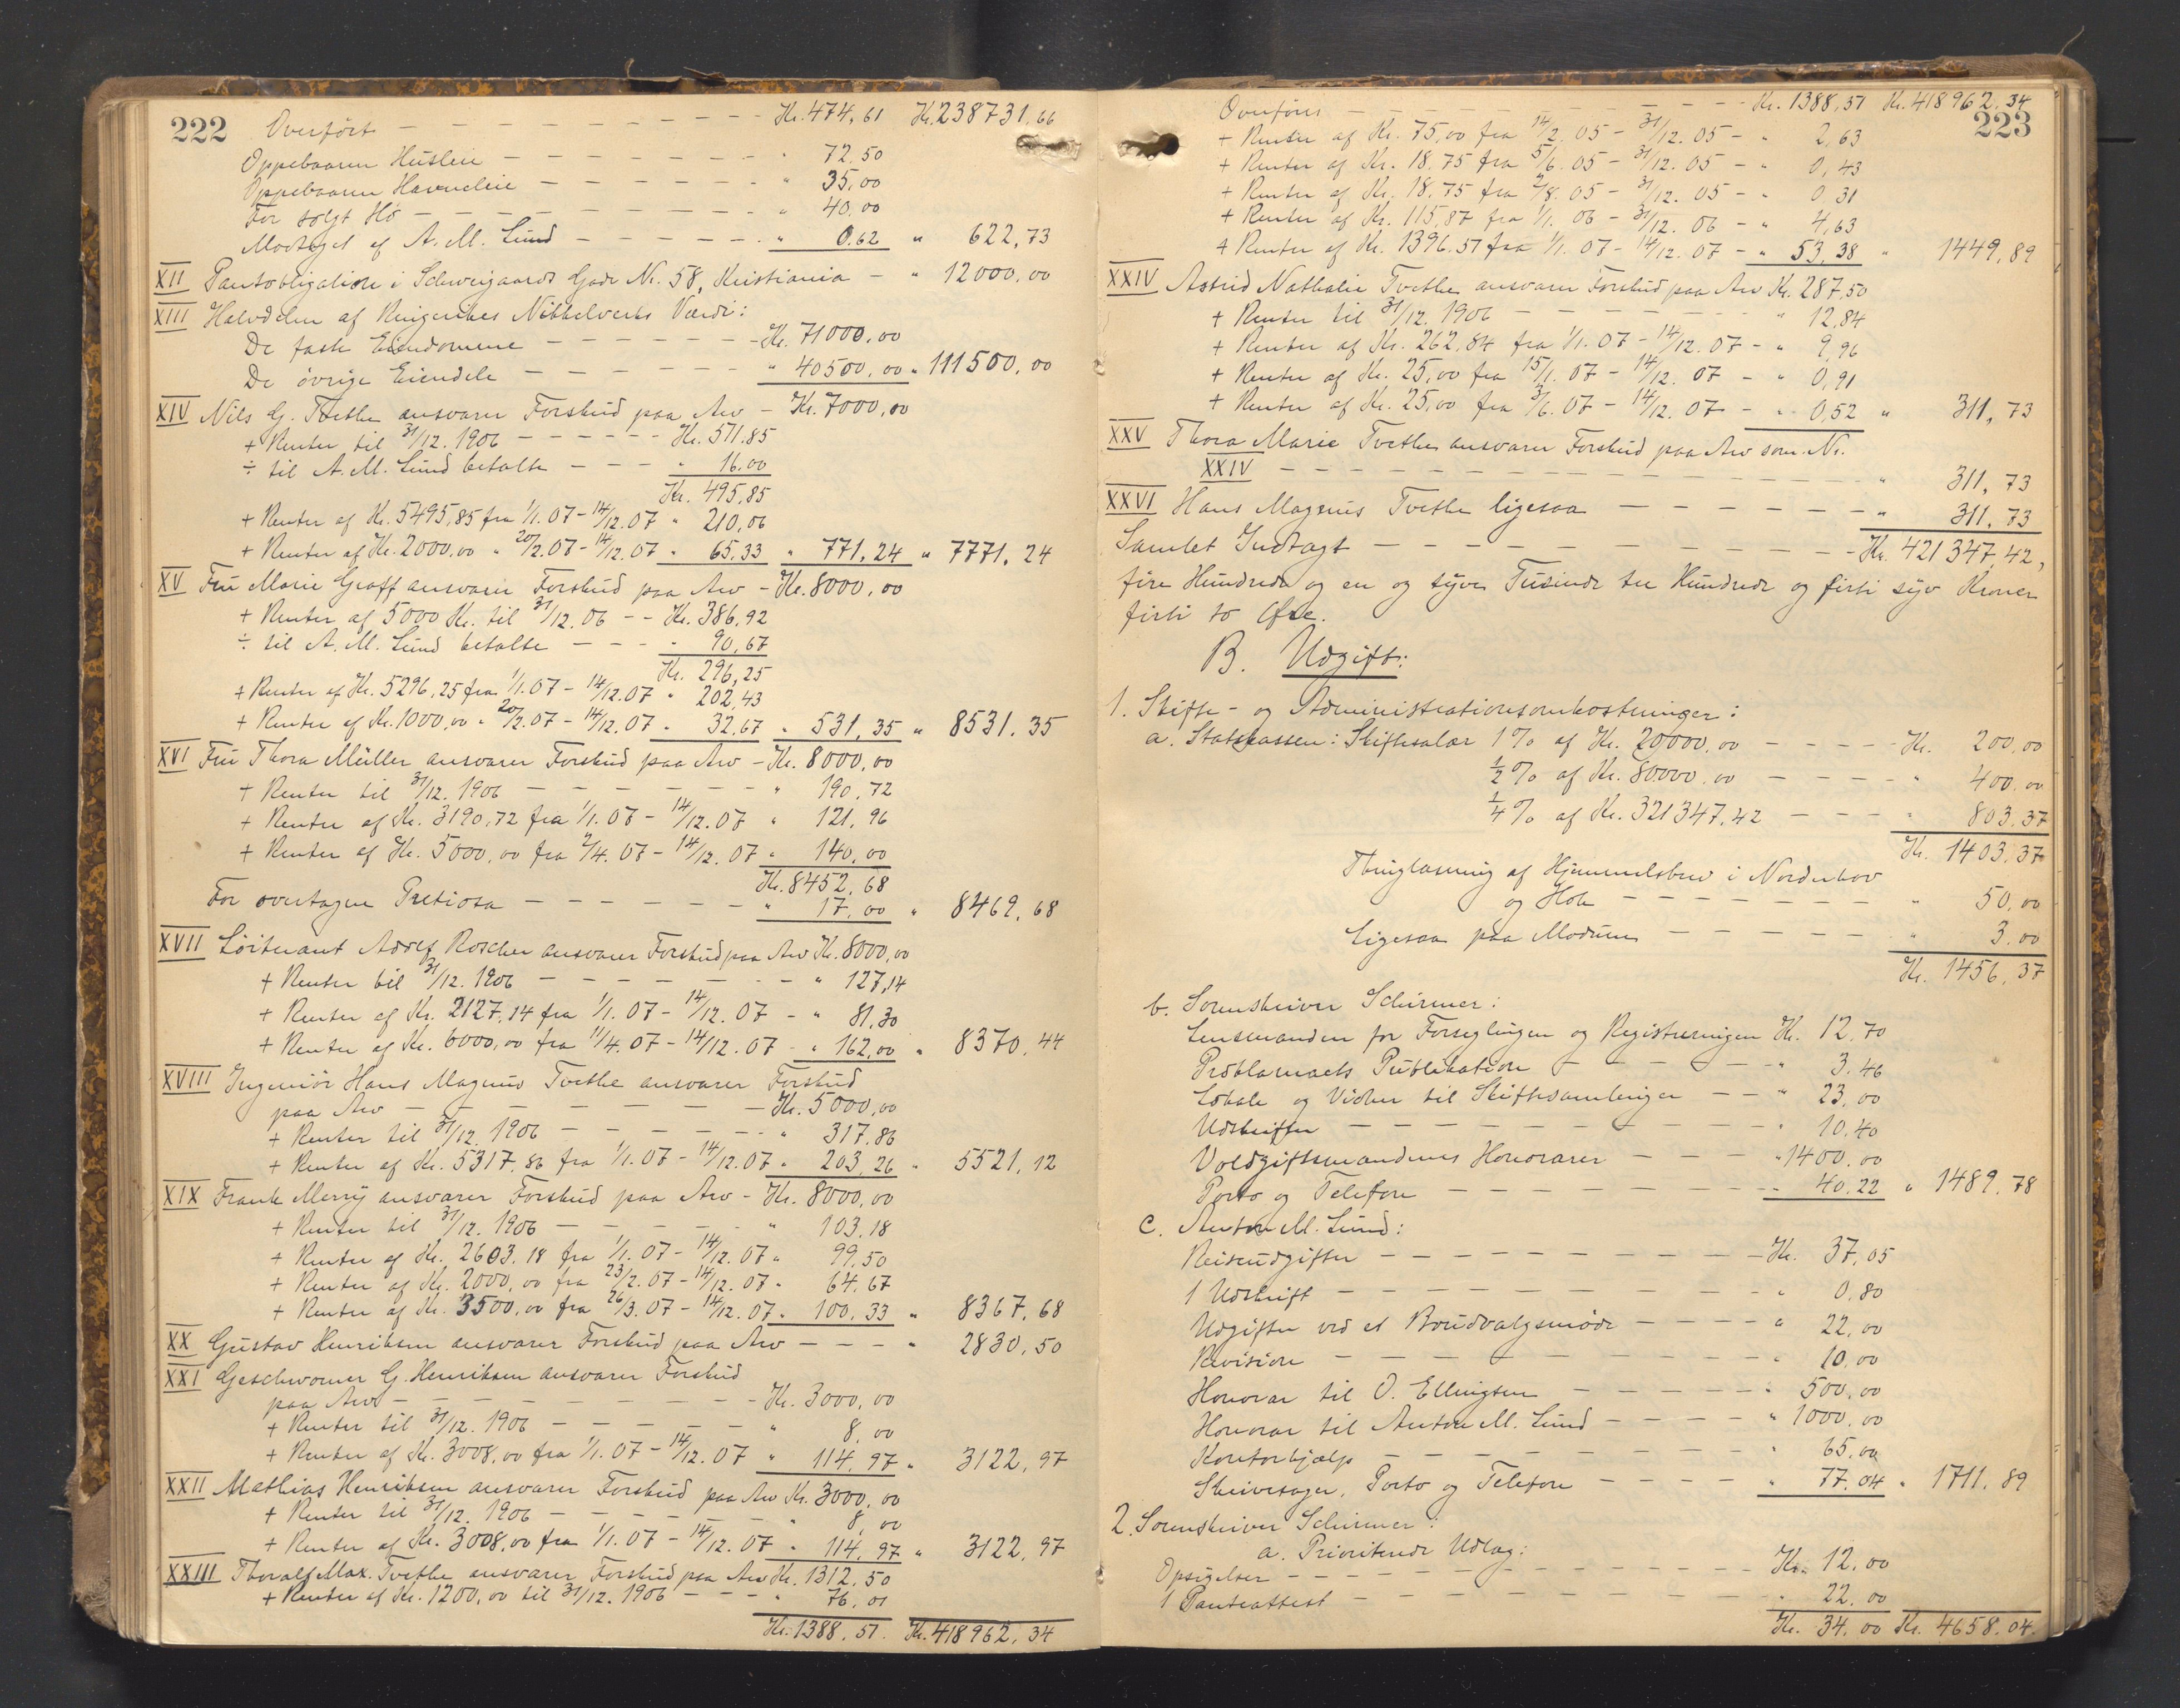 222 Overført — — — Kr. 474,61 Kr. 238731,66
Oppebaaren Husleie — — — " 72,50
Oppebaaren Havneleie — — — " 35,00
For solgt Hø — — — " 40,00
Modtaget af A. M. Lund — — — " 0,62 " 622,73
XII Pantobligation i Schweigaards Gade Nr. 58, Kristiania — " 12000,00
XIII Halvdelen af Ringerikes Nikkelverks Værdi:
De faste Eiendomme — — — Kr. 71000,00
De øvrige Eiendele — — — " 40500,00 " 111500,00
XIV Nils G. Tvethe ansvarer Forskud paa Arv — Kr. 7000,00
+ Renter til 31/12. 1906 — — — Kr. 511.85
÷ til A. M. Lund betalte — — — " 16.00
Kr. 495,85
+ Renter af Kr. 5495,85 fra 1/1. 07 - 14/12. 07 " 210,06
+ Renter af Kr. 2000,00 " 20/2. 07 - 14/12. 07 " 65,33 " 771,24 " 7771,24
XV Fru Marie Graff ansvarer Forskud paa Arv — Kr. 8000,00
+ Renter af 5000 Kr. til 31/12. 06 — — Kr. 386,92
÷ til A. M. Lund betalte — — — " 90,67
Kr. 296,25
+ Renter af Kr. 5296,25 fra 1/1. 07 - 14/12. 07 " 202,43
+ Renter af Kr. 1000,00 " 20/2. 07 - 14/12. 07 " 32,67 " 531,35 " 8531.35
XVI Fru Thora Müller ansvarer Forskud paa Arv — Kr. 8000,00
+ Renter til 31/12. 1906 — — — " 190,72
+ Renter af Kr. 3190,72 fra 1/1. 07 - 14/12. 07 " 121,96
+ Renter af Kr. 5000,00 fra /4. 07 - 14/12. 07 " 140,00
Kr. 8452,68
For overtagne Pretiosa — — — " 17,00 " 8469,68
XVII Løitnant Adolf Roscher ansvarer Forskud paa Arv Kr. 8000,00
+ Renter til 31/12. 1906 — — — " 127,14
+ Renter af Kr. 2127,14 fra 1/1. 07 - 14/12. 07 — " 81,30
+ Renter af Kr. 6000,00 fra 11/4. 07 - 14/12. 07 — " 162,00 " 8370,44
XVIII Ingeniør Hans Magnus Tvethe ansvarer Forskud
paa Arv — — — Kr. 5000,00
+ Renter til 31/12. 1906 — — — " 317.86
+ Renter af Kr. 5317.86 fra 1/1. 07 - 14/12. 07 " 203,26 " 5521,12
XIX Frank Merry ansvarer Forskud paa Arv — Kr. 8000,00
+ Renter til 31/12. 1906 — — — " 103,18
+ Renter af Kr. 2603,18 fra 1/1. 07 - 14/12. 07 " 99,50
+ Renter af Kr. 2000,00 fra 23/2. 07 - 14/12. 07 " 64,67
+ Renter af Kr. 3500,00 fra 26/3. 07 - 14/12. 07 " 100,33 " 8367,68
XX Gustav Henriksen ansvarer Forskud paa Arv — — — " 2830,50
XXI Geschworner G. Henriksen ansvarer Forskud
paa Arv — — — Kr. 3000,00
+ Renter til 31/12. 1906 — — — " 8,00
+ Renter af Kr. 3008,00 fra 1/1. 07 - 14/12. 07 " 114,97 " 3122,97
XXII Mathias Henriksen ansvarer Forskud paa Arv Kr. 3000,00
+ Renter til 31/12. 1906 — — — " 8,00
+ Renter af Kr. 3008,00 fra 1/1. 07 - 14/12. 07 " 114,97 " 3122,97
XXIII Thoralf Max. Tvethe ansvarer Forskud paa Arv Kr. 1312,50
+ Renter af Kr. 1200,00 til 31/12. 1906 — — — " 76,01
Kr. 1388,51. Kr. 418962,34
Overføres — — — Kr. 1388,51 Kr. 418962,34
223
+ Renter af Kr. 75,00 fra 14/2. 05 - 31/12. 05 — " 2,63
+ Renter af Kr. 18.75 fra 5/6. 05 - 31/12. 05 — " 0,43
+ Renter af Kr. 18,75 fra /8. 05 - 31/12. 05 — " 0,31
+ Renter af Kr. 115,87 fra 1/1. 06 - 31/12. 06 — " 4,63
+ Renter af Kr. 1396.51 fra 1/1. 07 - 14/12. 07 — " 53,38 " 1449,89
XXIV Astrid Nathalie Tvethe ansvarer Forskud paa Arv Kr. 287,50
+ Renter til 31/12. 1906 — — — " 12,84
+ Renter af Kr. 262,84 fra 1/1. 07 - 14/12. 07 — " 9,96
+ Renter af Kr. 25,00 fra 15/1. 07 - 14/12. 07 — " 0,91
+ Renter af Kr. 25,00 fra 3/6. 07 - 14/12. 07 — " 0,52 " 311,73
XXV Thora Marie Tvethe ansvarer Forskud paa Arv som Nr.
XXIV — — — " 311,73
XXVI Hans Magnus Tvethe ligesaa — — — " 311,73
Samlet Indtægt — — — Kr. 421347,42,
fire Hundrede og en og tyve Tusinde tre Hundrede og firti syv Kroner
firti to Øre.
B. Udgift:
1. Skifte- og Administrationsomkostninger:
a. Statskassen: Skiftesalær 1% af Kr. 20000,00 — — — Kr. 200,00
½% af Kr. 80000.00 — — — " 400.00
¼% af Kr. 321347,42 — — — " 803,37
Kr. 1403,37
Thinglæsning af Hjemmelsbrev i Norderhov
og Hole — — — " 50,00
Ligesaa paa Modum — — — " 3.00
Kr. 1456,37
b. Sorenskriver Schirmer:
Lensmanden for Forseglingen og Registreringen Kr. 12,70
Proklamaets Publikation — — — " 3.46
Lokale og Vidner til Skiftesamlinger — — " 23,00
Udskrifter — — — " 10,40
Voldgiftsmændenes Honorarer — — — " 1400,00
Porto og Telefon — — — " 40.22 " 1489,78
c. Anton M. Lund:
Reiseudgifter — — — Kr. 37,05
1 Udskrift — — — " 0,80
Udgifter ved et Boudvalgsmøde — — — " 22,00
Revision — — — " 10,00
Honorar til O. Ellingsen — — — " 500,00
Honorar til Anton M. Lund — — — " 1000,00
Kontorhjælp — — — " 65,00
Skrivesager, Porto og Telefon — — — " 77,04 " 1711,89
2. Sorenskriver Schirmer:
a. Prioriterede Udlæg:
Opsigelser — — — Kr. 12,00
1 Panteattest — — — " 22,00
Kr. 34,00 Kr. 4658.04.